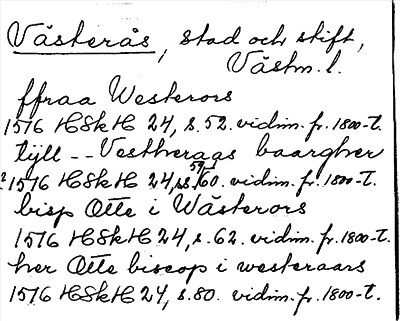 Västerås, stad och stift,
Västm. l.
ffraa Westerors
1516 HSkH 24, s. 52. vidim. fr. 1800-t.
tijll -- Vestheraas baargher
? 1516 HSkH 24, ss. 59/60. vidim. fr. 1800-t.
bisp Otte i Wästerors
1516 HSkH 24, s. 62. vidim. fr. 1800-t.
her Otte biscop i westeraars
1516 HSkH 24, s. 80. vidim. fr. 1800-t.